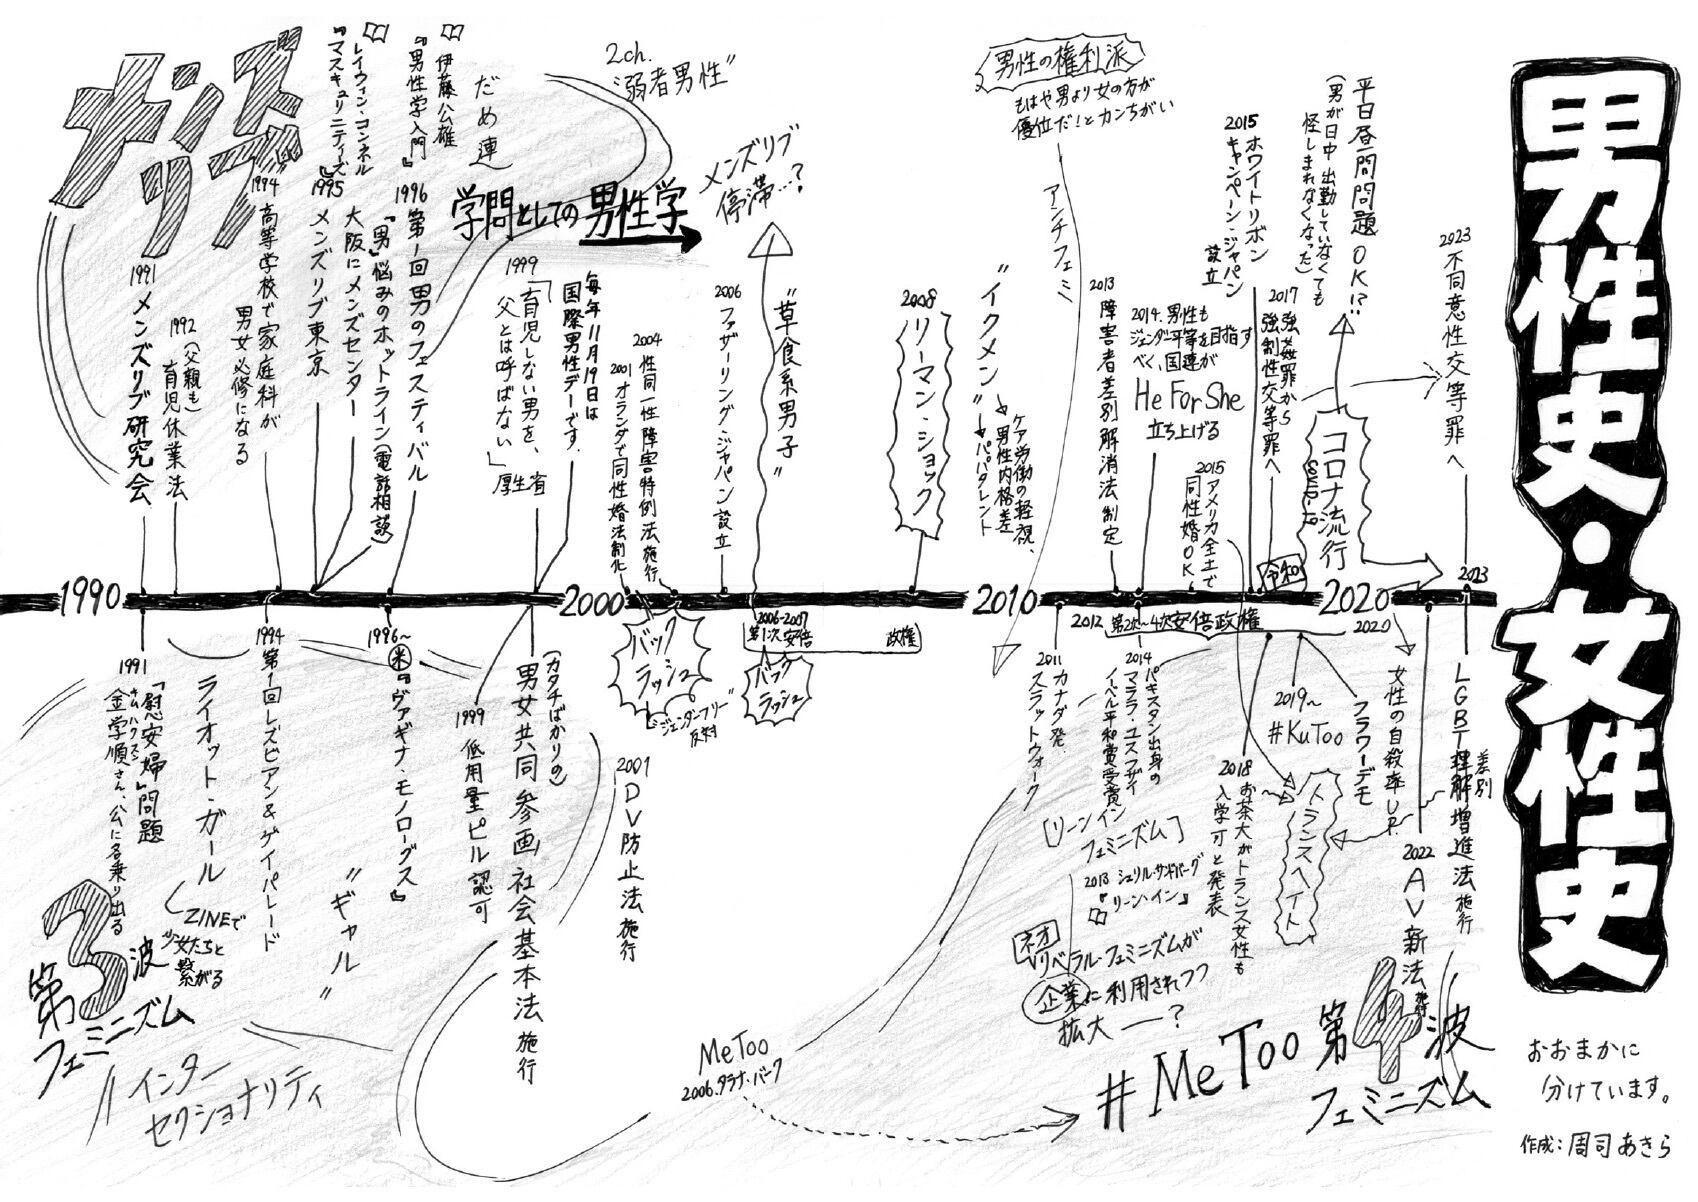 男性史・女性史
おおまかに
分けています。
作成:周司あきら
メンズ
リブ
1991
メンズリブ研究会
1992
(父親も)
育児休業法
1994
高等学校で家庭科が
男女必修になる
レイウィン・コンネル
『マスキュリニティーズ』
1995
メンズリブ東京
大阪にメンズセンター
『男』悩みのホットライン(電話相談)
伊藤公雄
『男性学入門』
1996
第1回男のフェスティバル
だめ連
学問としての男性学
2ch.
"溺者男性"
メンズリブ
停滞…?
1999
「育児しない男を、
父とは呼ばない」
厚生省
毎年11月19日は
国際男性デーです。
2001
オランダで同性婚法制化
2004
性同一性障害特例法施行
2006
ファザーリング・ジャパン設立
"草食系男子"
2008
リーマン・ショック
男性の権利派
もはや男より女の方が
優位だ!とカンちがい
アンチフェミ
"イクメン"
→ケア労働の軽視、
男性内格差
→パパタレント
2013
障害者差別解消法制定
2014.男性も
ジェンダー平等を目指す
べく、国連が
HeForShe
立ち上げる
2015
ホワイトリボン
キャンペーン・ジャパン
設立
2015
アメリカ全土で
同性婚OK
2017
強姦罪から
強制性交等罪へ
平日昼間問題OK!?
(男が日中出勤していなくても
怪しまれなくなった)
コロナ流行
COVID-19
令和
2023
不同意性交等罪へ
1990
2000
2010
2020
2023
1991
「慰安婦」問題
金学順さん、公に名乗り出る
キムハクスン
ライオット・ガール
ZINEで
少女たちと
繋がる
第3波
フェミニズム
インター
セクショナリティ
1994
第1回レズビアン&ゲイパレード
"ギャル"
1996~
米『ヴァギナ・モノローグス』
1999
低用量ピル認可
(カタチばかりの)
男女共同参画社会基本法施行
バック
ラッシュ
"ジェンダーフリー"
反対
2001
DV防止法施行
2006-2007
第1次安倍政権
バック
ラッシュ
MeToo
2006.タラナ・バーク
2011
カナダ発.
スラットウォーク
2012
第2次~4次安倍政権
2020
2014
パキスタン出身の
マララ・ユスフザイ
ノーベル平和賞受賞
[リーンイン
フェミニズム]
2013 シェリル・サンドバーグ
『リーン・イン』
ネオ
リベラル・フェミニズムが
企業に利用されつつ
拡大―?
2018
お茶大がトランス女性も
入学可と発表
2019~
#KuToo
フラワーデモ
トランスヘイト
女性の自殺率UP.
2022
AV新法
施行
差別
LGBT理解増進法施行
#MeToo
第4波
フェミニズム